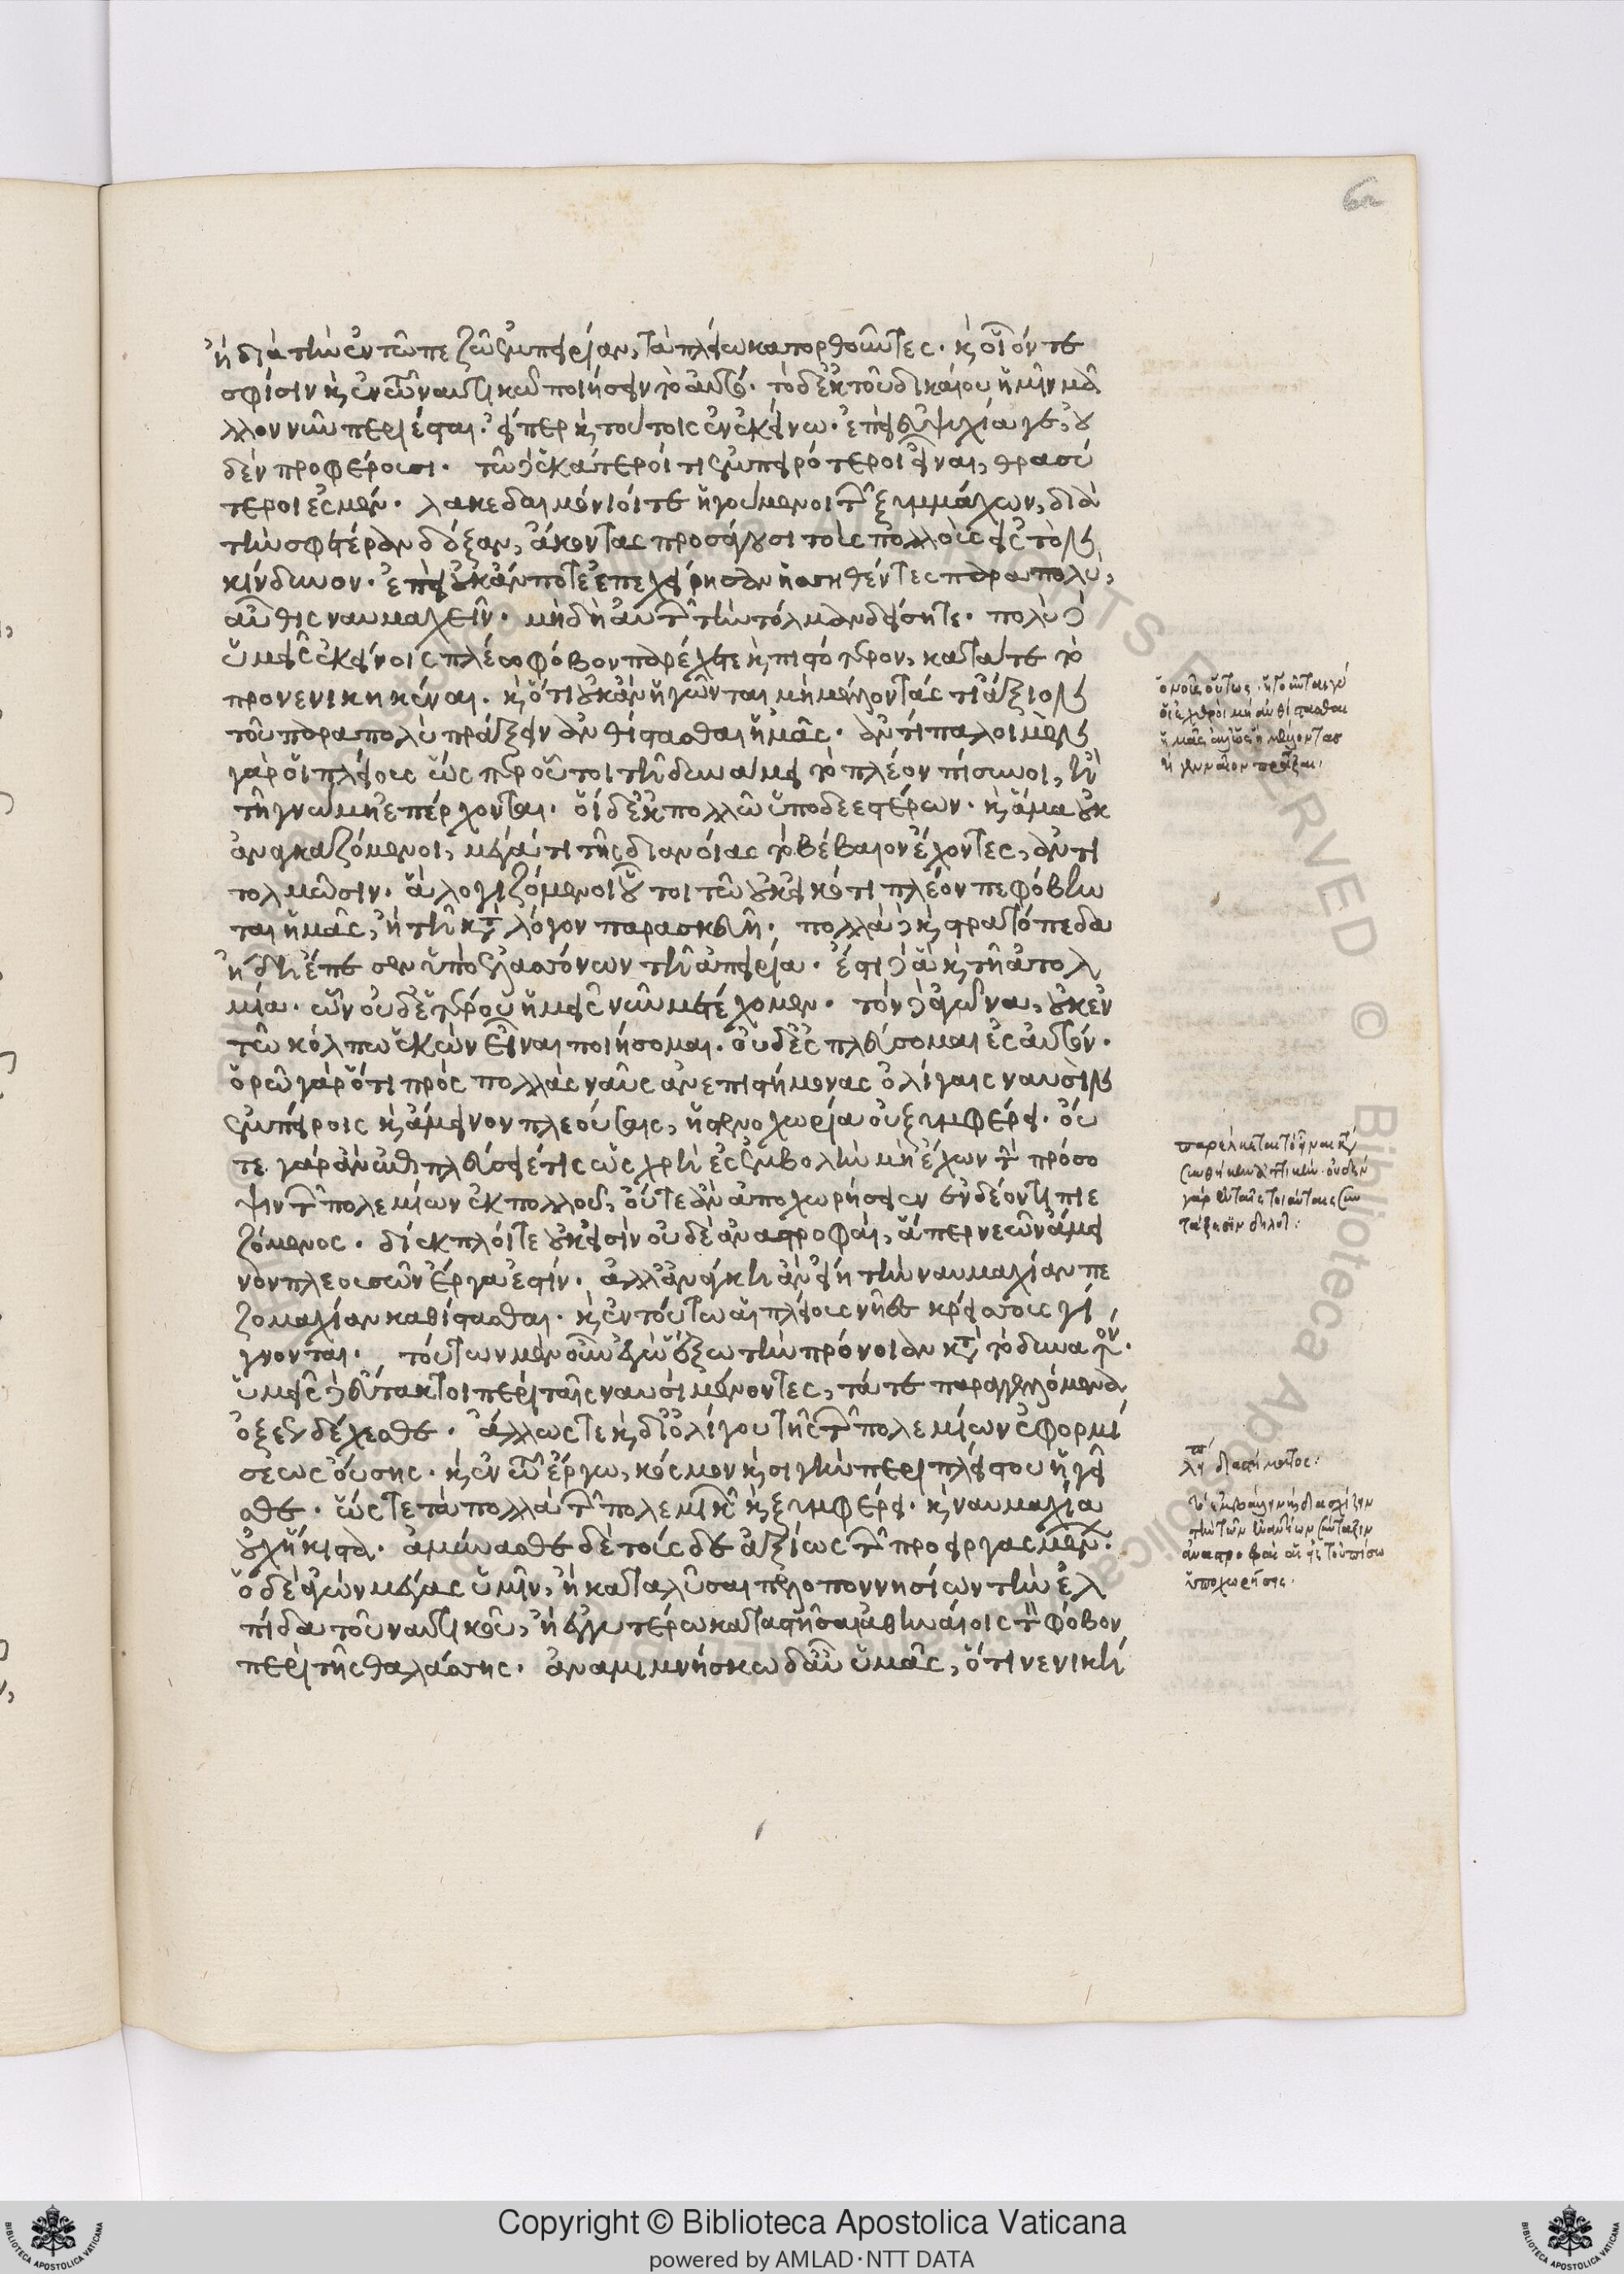 6r
ἢ διὰ τὴν ἐν τῶ πεζῶ ἐμπειρίαν, τὰ πλείω κατορθοῦντες. κ οἴονταί
σφίσιν κ ἐν τῶ ναυτικῶ ποιήσειν τὸ αὐτό. τὸ δ' ἐκ τοῦ δικαίου ἡμῖν μᾶ
λλον νῦν περιέσται. εἴπερ κ τούτοις ἐν ἐκείνω. ἐπεὶ εὐψυχία γε, οὐ
δὲν προφέρουσι. τῶ δὲ ἑκάτεροί τι ἐμπειρότεροι εἶναι, θρασύ
τεροι ἐσμέν. λακεδαιμόνιοί τε ἡγούμενοι τῶν ξυμμάχων, διὰ
τὴν σφετέραν δόξαν, ἄκοντας προσάγουσι τοὺς πολλοὺς ἐς τὸν
κίνδυνον. ἐπεὶ οὐκ ἄν ποτε ἐπεχείρησαν ἡσσηθέντες παρα πολὺ,
αὖθις ναυμαχεῖν. μὴ δὴ αὐτῶν τὴν τόλμαν δείσητε. πολὺ δὲ
ὑμεῖς ἐκείνοις πλέω φόβον παρέχετε κ πιστότερον, κατά τε τὸ
προνενικηκέναι. κ ὅτι οὐκ ἂν ἡγοῦνται μὴ μέλλοντάς τι ἄξιον
τοῦ παραπολὺ πράξειν ἀνθίστασθαι ἡμᾶς. ἀντίπαλοι μὲν
γὰρ οἱ πλείους ὥσπερ οὗτοι τῆ δυνάμει τὸ πλέον πίσυνοι, ἢ
τῆ γνώμη ἐπέρχονται. οἱ δ' ἐκ πολλῶ ὑποδεεστέρων. κ ἅμα οὐκ
ἀναγκαζόμενοι, μέγα τι τῆς διανοίας τὸ βέβαιον ἔχοντες, ἀντι
τολμῶσιν. ἃ λογιζόμενοι οὗτοι τῶ οὐκ εἰκότι πλέον πεφόβην
ται ἡμᾶς, ἢ τῆ κατὰ λόγον παρασκευῆ. πολλὰ δὲ κ στρατόπεδα
ἤδη ἔπεσεν ὑπ' ἐλασσόνων τῆ ἀπειρία. ἔστι δὲ ἃ κ τῆ ἀτολ
μία. ὧν οὐδετέρου ἡμεῖς νῦν μετέχομεν. τὸν δὲ ἀγῶνα, οὐκ ἐν
τῶ κόλπω ἑκὼν εἶναι ποιήσομαι. οὐδ' ἐσπλεύσομαι ἐς αὐτόν.
ὁρῶ γὰρ ὅτι πρὸς πολλὰς ναῦς ἀνεπιστήμονας ὀλίγαις ναυσὶν
ἐμπείροις κ ἄμεινον πλεούσαις, ἡ στενοχωρία οὐ ξυμφέρει. οὔ
τε γὰρ ἂν ἐπιπλεύσειέ τις ὡς χρὴ ἐς ἐμβολὴν μὴ ἔχων τὴν πρόσο
ψιν τῶν πολεμίων ἐκ πολλοῦ, οὔτε ἂν ἀποχωρήσειεν ἐν δέοντι πιε
ζόμενος. διέκπλοί τε οὐκ εἰσὶν οὐδὲ ἀναστροφαί, ἅπερ νεῶν ἄμει
νον πλεουσῶν ἔργα ἐστίν. ἀλλ' ἀνάγκη ἂν εἴη τὴν ναυμαχίαν πε
ζομαχίαν καθίστασθαι. κ ἐν τούτω αἱ πλείους νῆες κρείσσους γί
γνονται. τούτων μὲν οὖν ἐγὼ ἕξω τὴν πρόνοιαν κατὰ τὸ δυνατόν.
ὑμεῖς δὲ εὔτακτοι περὶ ταῖς ναυσὶ μένοντες, τά τε παραγγελλόμενα
ὀξέως δέχεσθε. ἄλλως τε κ δι' ὀλίγου τῆς τῶν πολεμίων ἐφορμί
σεως οὔσης. κ ἐν τῶ ἔργω, κόσμον κ σιγὴν περὶ πλείστου ἡγεῖ
σθε. ὥς τε τὰ πολλὰ τῶν πολεμικῶν κ ξυμφέρει. κ ναυμαχία
οὐχ ἥκιστα. ἀμύνασθε δὲ τούς δε ἀξίως τῶν προειργασμένων.
ὁ δὲ ἀγὼν μέγας ὑμῖν, ἢ καταλῦσαι πελοποννησίων τὴν ἐλ
πίδα τοῦ ναυτικοῦ, ἢ ἐγγυτέρω καταστῆσαι ἀθηναίοις τὸν φόβον
περὶ τῆς θαλάσσης. ἀναμιμνήσκω δ' αὖ ὑμᾶς, ὅτι νενική
ἡμᾶς μέλλοντας
τι γενναῖον πρᾶξαι.
διαστήματος:
τὴν τῶν ἐναντίων σύνταξιν
ὑποχωρήσεις.
Copyright © Biblioteca Apostolica Vaticana
powered by AMLAD·NTT DATA